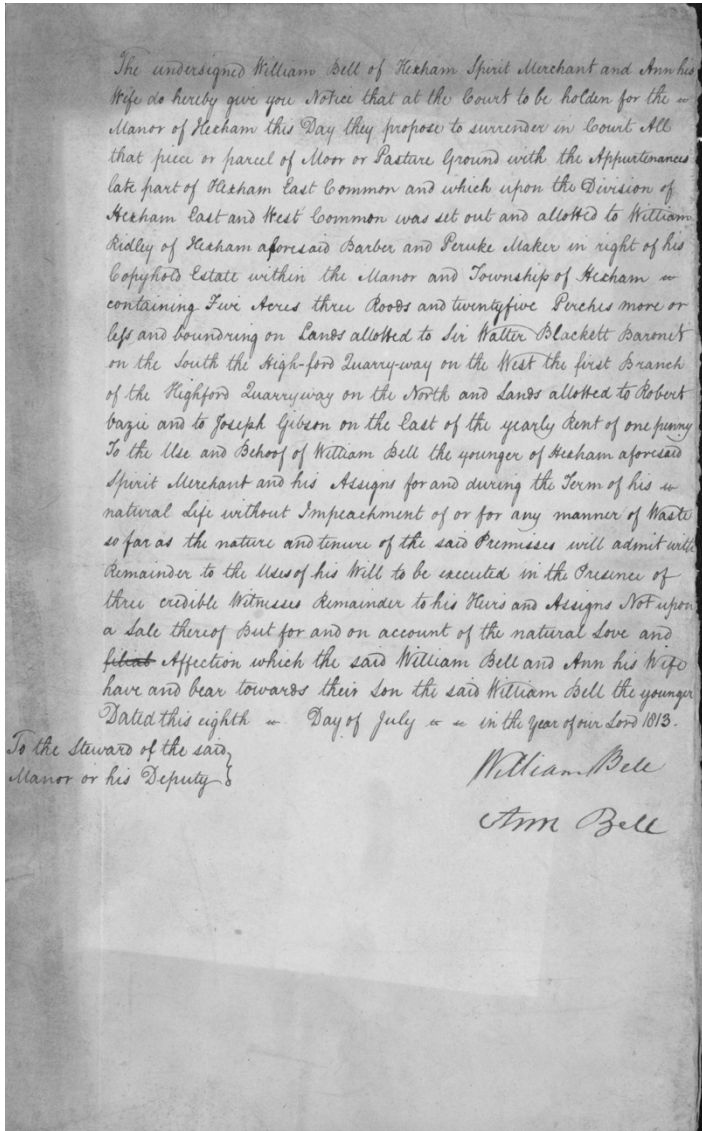 The undersigned William Bell of Hexham Spirit Merchant and Ann his
Wife do hereby give you Notice that at the Court to be holden for the
Manor of Hexham this Day they propose to surrender in Court All
that piece or parcel of Moor or Pasture Ground with the Appurtenances
late part of Hexham East Common and which upon the Division of
Hexham East and West Common was set out and allotted to William
Ridley of Hexham aforesaid Barber and Peruke Maker in right of his
Copyhold Estate within the Manor and Township of Hexham
containing Five Acres three Roods and twentyfive Perches more or
less and boundring on Lands allotted to Sir Walter Blackett Baronet
on the South the High-ford Quarry-way on the West the first Branch
of the Highford Quarryway on the North and Lands allotted to Robert
Eazie and to Joseph Gibson on the East of the yearly Rent of one penny
To the Use and Behoof of William Bell the younger of Hexham aforesaid
Spirit Merchant and his Assigns for and during the Term of his
natural Life without Impeachment of or for any manner of Waste
so far as the nature and tenure of the said Premisses will admit with
Remainder to the Uses of his Will to be executed in the Presence of
three credible Witnesses Remainder to his Heirs and Assigns Not upon
a Sale thereof But for and on account of the natural Love and
filial Affection which the said William Bell and Ann his Wife
have and bear towards their Son the said William Bell the younger
Dated this eighth Day of July in the year of our Lord 1813.
To the Steward of the said
Manor or his Deputy
William Bell
Ann Bell